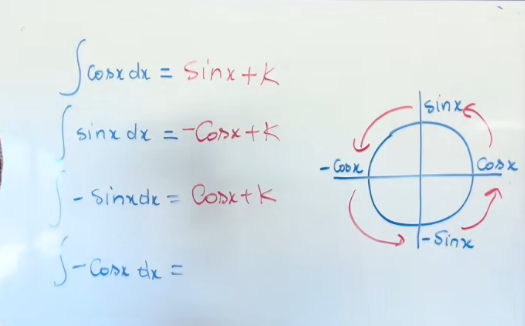 ∫cosx dx = sinx + K
∫sinx dx = -Cosx + K
∫-sinx dx = Cosx + K
∫-Cosx dx =
sinx
-Cosx
Cosx
-Sinx